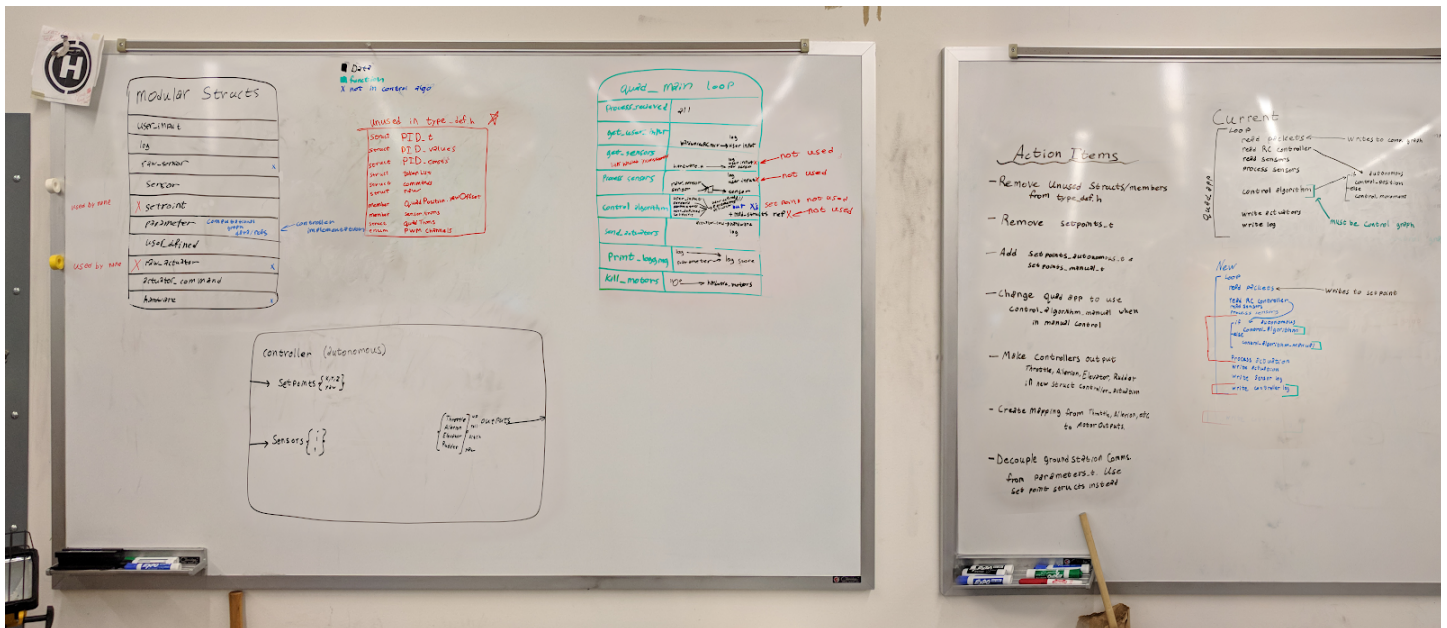 H
Modular Structs
user_input
log
raw_sensor
x
sensor
used by none
X setpoint
parameter
computational
graph
controller
implementations
user_defined
used by none
X raw_actuator
x
actuator_command
hardware
x
Data
function
X not in control algo
unused in type_def.h
struct PID_t
struct PID_values
struct PID_errors
struct
struct commands
struct raw
member
member
member quadTrims
enum PWM channels
quad_main loop
process_received
all
get_user_input
log
user input
get_sensors
log
not used
Process sensors
log
not used
sensor
Control algorithm
our X's
setpoint not used
not used
send_actuators
log
Print_logging
log
parameter
log store
Kill_motors
hardware_motors
controller (autonomous)
Setpoints { x,y,z
yaw }
Sensors {
Throttle
Aileron
Elevator
Rudder
outputs
Action Items
- Remove Unused Structs/members
from type_def.h
- Remove setpoints_t
- Add setpoints_autonomous_t &
setpoints_manual_t
- Change quad app to use
control_algorithm_manual when
in manual control
- Make Controllers output
Throttle, Aileron, Elevator, Rudder
in new struct controller_actuation
- Create Mapping from Throttle, Aileron, etc.
to Motor Outputs.
- Decouple ground station Comms.
from parameters_t. Use
set point structs instead
Current
quad_app
Loop
read packets
writes to comp graph
read RC controller
read sensors
process sensors
if autonomous
control algorithm
else
control_movement
write actuators
write log
must be Control graph
New
Loop
read packets
writes to setpoint
read RC controller
read sensors
process sensors
if autonomous
control_algorithm
else
control_algorithm_manual
process actuation
write actuation
write sensor log
write controller log